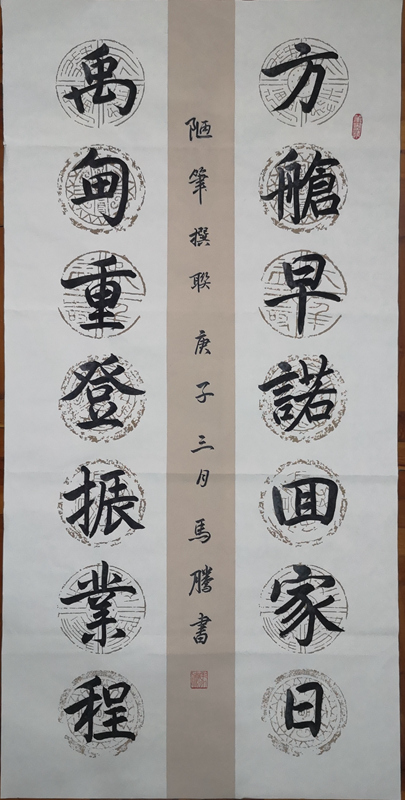 方艙早諾回家日
禹甸重登振業程
陋筆撰聯庚子三月馬騰書